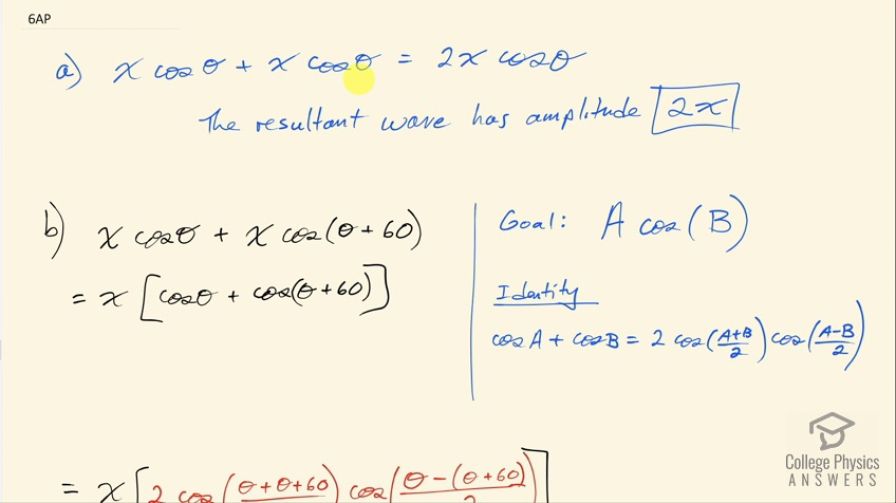 6AP
a) x cos θ + x cos θ = 2x cos θ
The resultant wave has amplitude 2x
b) x cos θ + x cos(θ + 60)
= x [cos θ + cos(θ + 60)]
Goal: A cos(B)
Identity
cos A + cos B = 2 cos((A+B)/2) cos((A-B)/2)
= x [2 cos((θ + θ + 60)/2) cos((θ - (θ + 60))/2)]
College Physics
ANSWERS